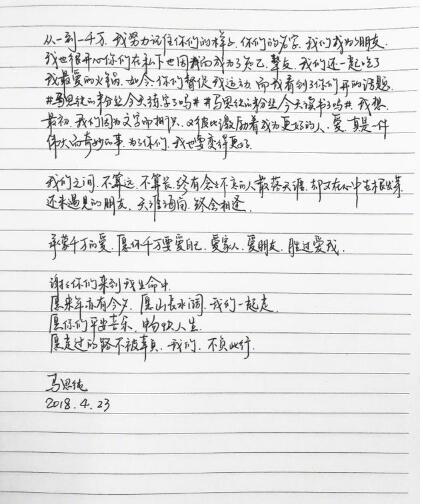 从一到一千万，我努力记住你们的样子，你们的名字，我们成为朋友，
我也很开心你们在私下也因我而成为了知己，挚友，我们还一起吃了
我最爱的火锅。如今，你们督促我运动，而我看到了你们开的话题，
#马思纯的粉丝今天练字了吗# #马思纯的粉丝今天读书了吗#，我想，
最初，我们因为文字而相识，又彼此激励着成为更好的人，爱，真是一件
伟大而奇妙的事，为了你们，我也要变得更好。
我们之间，不算远，不算长，终有会的人散落天涯，却又在心中生根发芽
还未遇见的朋友，天涯海角，终会相逢。
承蒙千万的爱，愿你千万要爱自己，爱家人，爱朋友，胜过爱我。
谢谢你们来到我生命中
愿来年亦有今夕，愿山长水阔，我们一起走
愿你们平安喜乐，畅快人生
愿走过的路不被辜负，我们，不负此行。
马思纯
2018.4.23